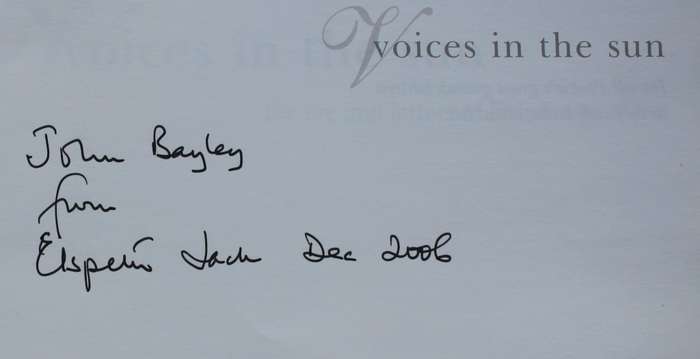 Voices in the sun
John Bayley
from
Elspeth Jack Dec 2006